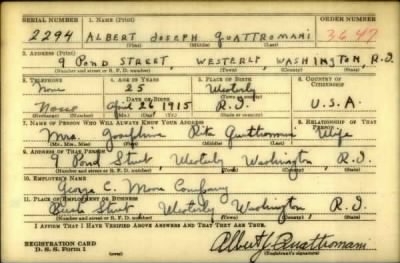 SERIAL NUMBER 1. NAME (Print) ORDER NUMBER (Print)
2294 ALBERT JOSEPH QUATTROMANI 3647
(First) (Middle) (Last)
2. ADDRESS (Print)
9 POND STREET, WESTERLY, WASHINGTON, R.I.
(Number and street or R. F. D. number) (Town) (County) (State)
3. TELEPHONE 4. AGE IN YEARS 5. PLACE OF BIRTH 6. COUNTRY OF CITIZENSHIP
None 25 Westerly
DATE OF BIRTH (Town or county)
None April 26 1915 R.I. U.S.A.
(Exchange) (Number) (Mo.) (Day) (Yr.) (State or country)
7. NAME OF PERSON WHO WILL ALWAYS KNOW YOUR ADDRESS 8. RELATIONSHIP OF THAT PERSON
Mrs. Josephine Rita Quattromani Wife
(Mr., Mrs., Miss) (First) (Middle) (Last)
9. ADDRESS OF THAT PERSON
9 Pond Street, Westerly Washington, R.I.
(Number and street or R. F. D. number) (Town) (County) (State)
10. EMPLOYER'S NAME
George C. Moore Company
11. PLACE OF EMPLOYMENT OR BUSINESS
Street Westerly Washington, R.I.
(Number and street or R. F. D. number) (Town) (County) (State)
I AFFIRM THAT I HAVE VERIFIED ABOVE ANSWERS AND THAT THEY ARE TRUE.
REGISTRATION CARD
D. S. S. Form 1
Albert J. Quattromani
(Registrant's signature)